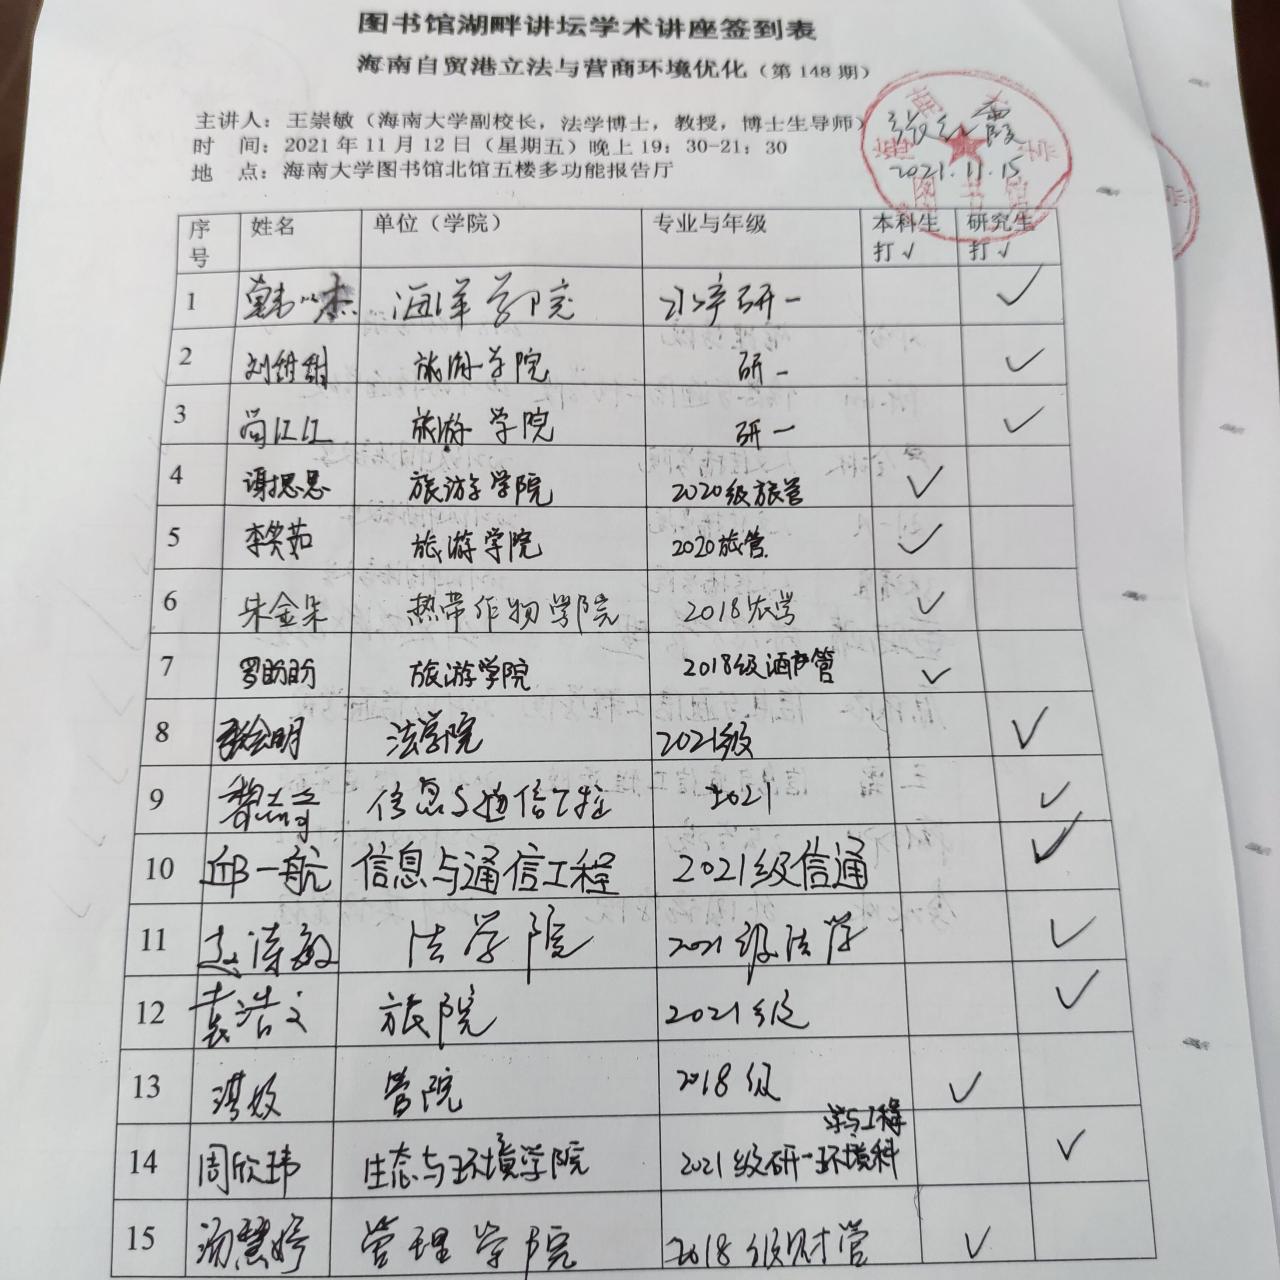 图书馆湖畔讲坛学术讲座签到表
海南自贸港立法与营商环境优化（第 148 期）
主讲人：王崇敏（海南大学副校长，法学博士，教授，博士生导师）
时 间：2021 年 11 月 12 日（星期五）晚上 19：30-21：30
2021.11.15
地 点：海南大学图书馆北馆五楼多功能报告厅
序号 姓名 单位（学院） 专业与年级 本科生打√ 研究生打√
1 韩 杰 海洋学院 研一 ✓
2 刘甜甜 旅游学院 研一 ✓
3 尚江江 旅游学院 研一 ✓
4 谢思思 旅游学院 2020级旅管 ✓
5 李笑茹 旅游学院 2020旅管 ✓
6 朱金朵 热带作物学院 2018农学 ✓
7 罗盼盼 旅游学院 2018级酒店管 ✓
8 张会明 法学院 2021级 ✓
9 信息与通信工程 2021 ✓
10 邱一航 信息与通信工程 2021级信通 ✓
11 赵清敏 法学院 2021级法学 ✓
12 袁浩文 旅院 2021级 ✓
13 管院 2018级 ✓
14 周欣玮 生态与环境学院 2021级研一环境科学与工程 ✓
15 汤慧婷 管理学院 2018级财管 ✓